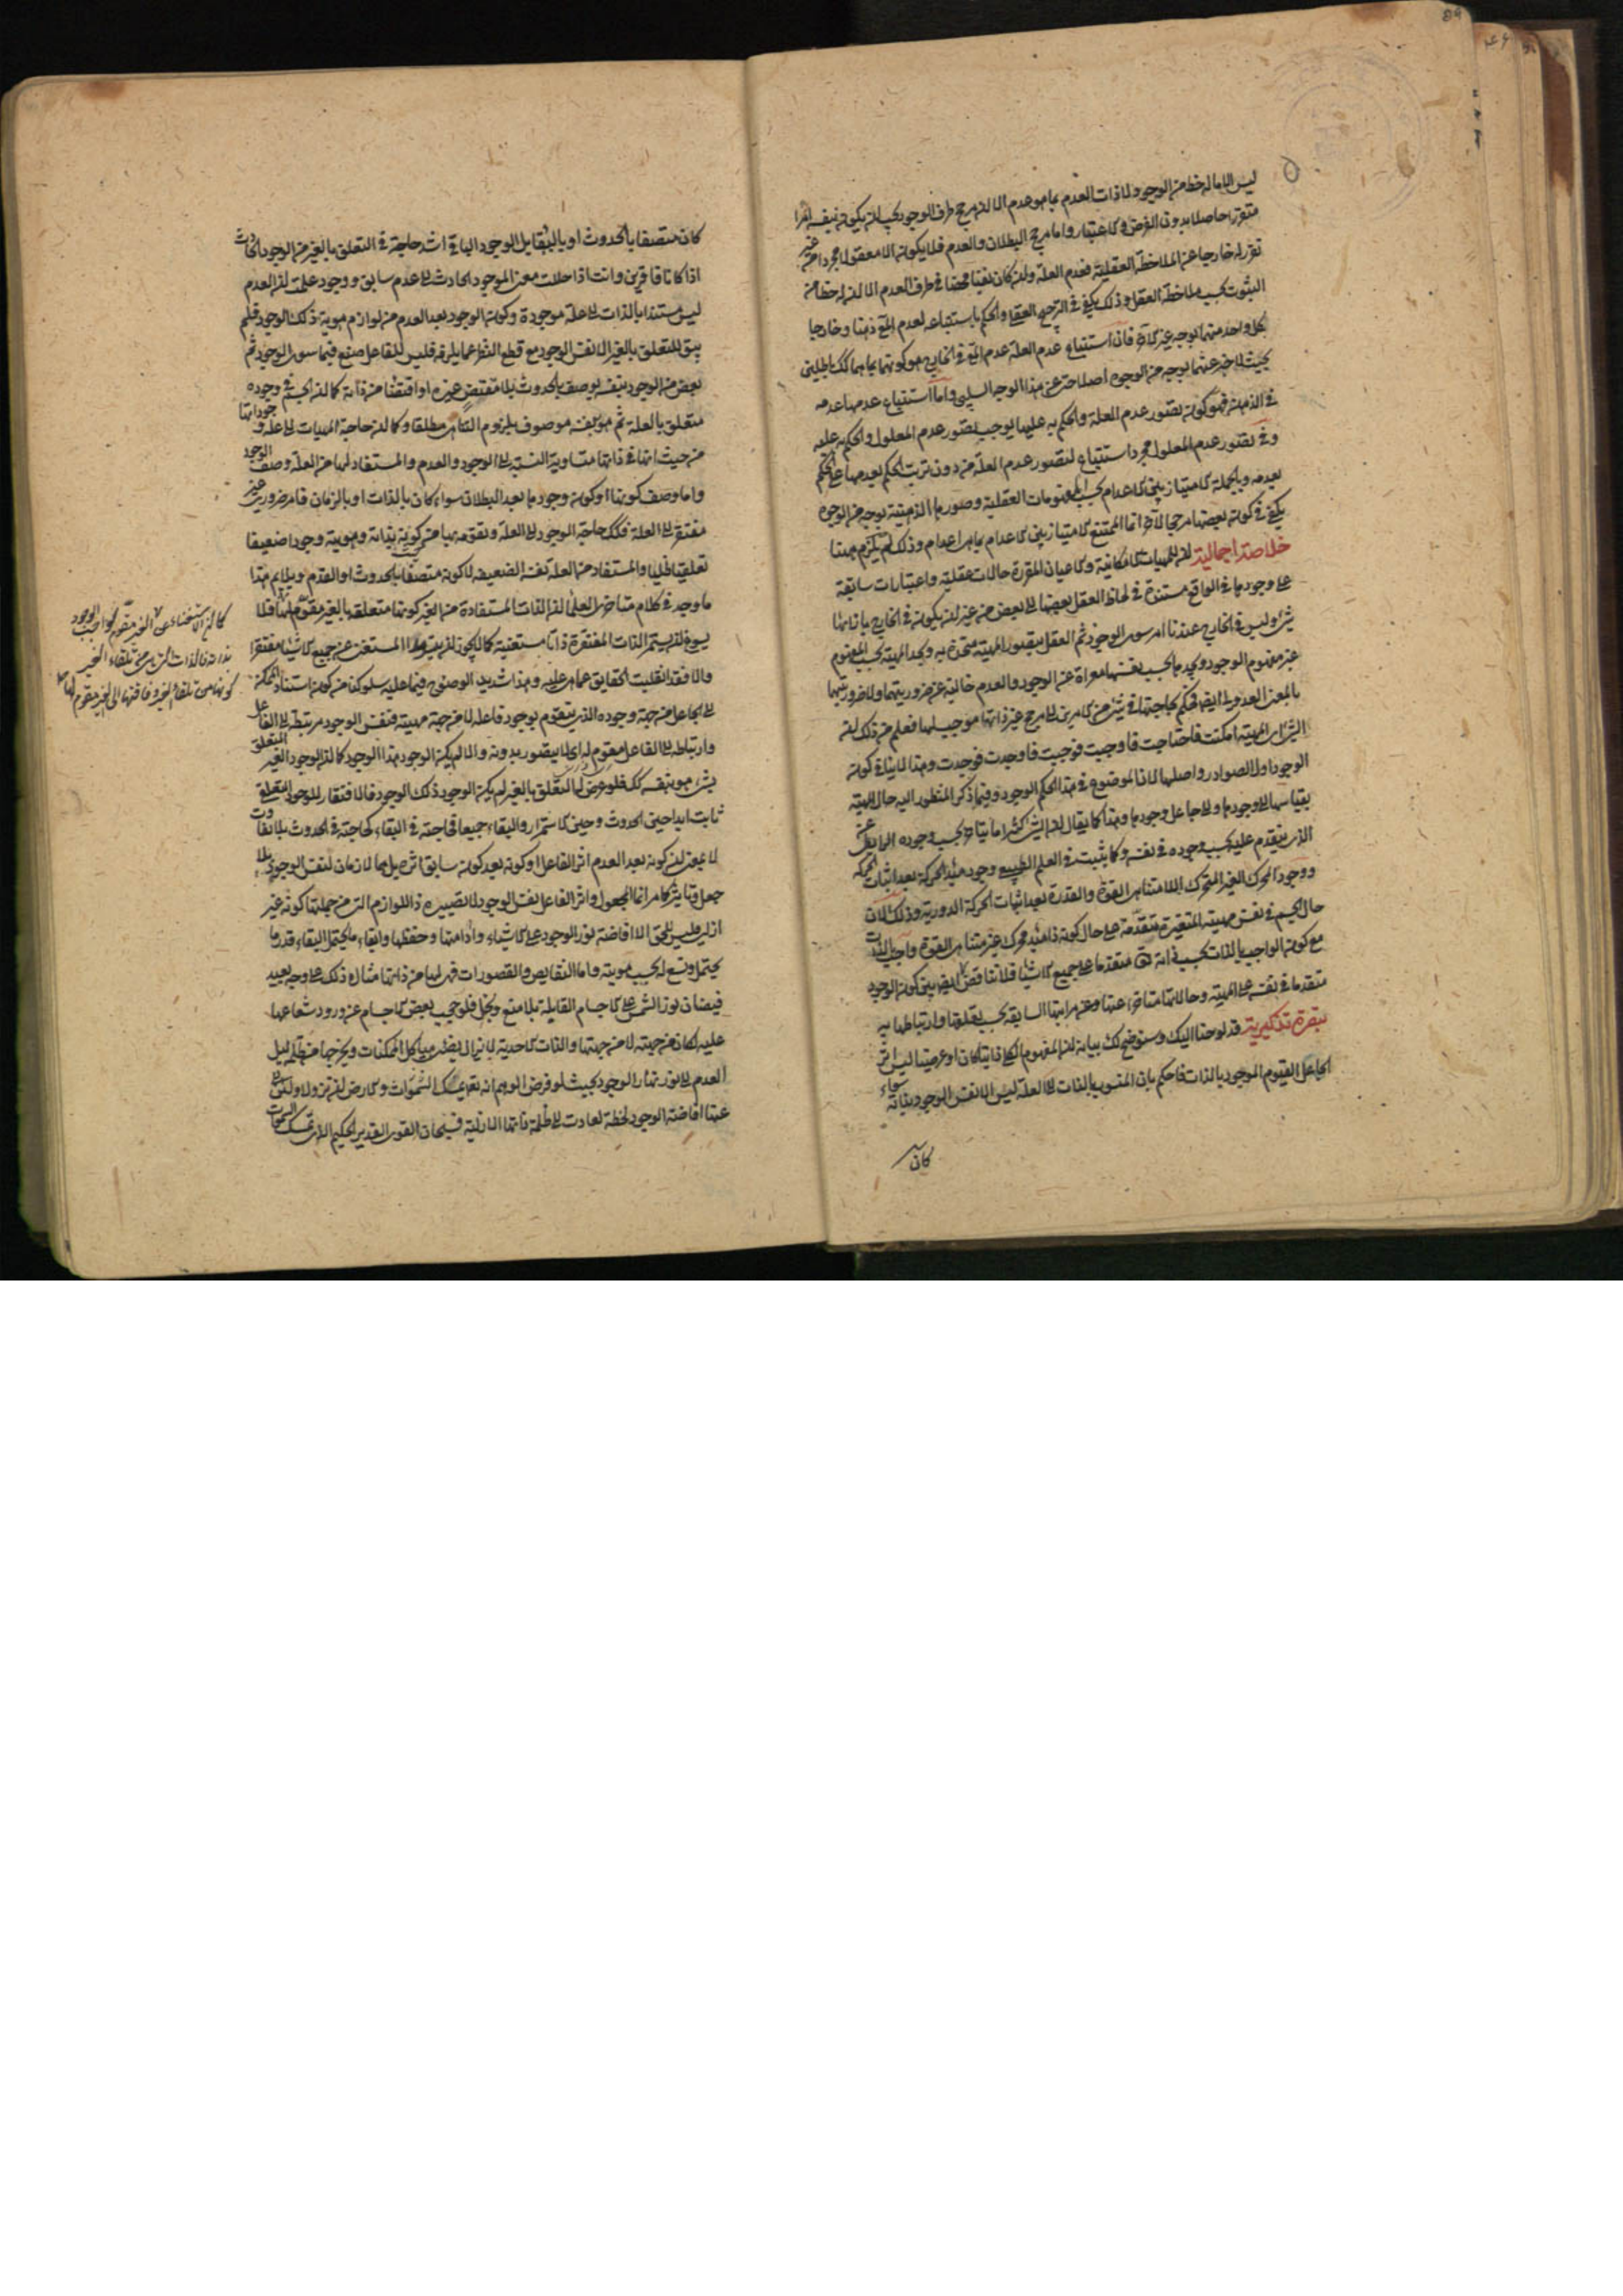 ليس الا ماله حظ من الوجود ولا ذات العدم بما هو عدم الا ان مرجح طرف الوجود يجب ان يكون بنفسه امرا
متقررا حاصلا بدون الفرض والاعتبار واما مرجح البطلان والعدم فلا يكون الا معقولا مجردا من غير
تقرر له خارجا عن الملاحظة العقلية فعدم العلة وان كان نفيا محضا في ظرف العدم الا ان له حظا من
الثبوت بحسب ملاحظة العقل وذلك يكفي في الترجيح العقلي والحكم باستتباعه لعدم المع ذهنا وخارجا
لكل واحد منهما بوجه غير الآخر فان استتباع عدم العلة عدم المع في الخارج هو كونهما بما هما كك باطلين
بحيث لا خبر عنهما بوجه من الوجوه اصلا حتى عن هذا الوجه السلبي واما استتباع عدمها عدمه
في الذهن فهو كون تصور عدم العلة والحكم به عليها يوجب تصور عدم المعلول والحكم به عليه
وفي تصور عدم المعلول مجرد استتباع لتصور عدم العلة من دون ترتب الحكم بعدمها على الحكم
بعدمه وبالجملة الامتياز بين الاعدام بحسب المفهومات العقلية وصورها الذهنية بوجه من الوجوه
يكفي في كون بعضها مرجحا للآخر انما الممتنع الامتياز بين الاعدام بما هي اعدام وذلك لم يلزم هيهنا
خلاصة اجمالية ان للمهيات الامكانية والاعيان المتقررة حالات عقلية واعتبارات سابقة
على وجودها في الواقع مستندة في لحاظ العقل بعضها الى بعض من غير ان يكون في الخارج بازائها
شئ وليس في الخارج عندنا امر سوى الوجود ثم العقل يتصور المهية متحدة به ويجد المهية بحسب المفهوم
غير مفهوم الوجود ويجدها بحسب نفسها معراة عن الوجود والعدم خالية عن ضروريتهما ولا ضروريتهما
بالمعنى العدولي ايضا فيحكم بحاجتها في شئ من الامرين الى مرجح غير ذاتها موجب لها فعلم من ذلك ان
الشئ اي المهية امكنت فاحتاجت فاوجبت فوجبت فاوجدت فوجدت وهذا لا ينافي كون
الوجود اول الصوادر واصلها لان الموضوع في هذا الحكم الوجود وفيما ذكر المنظور اليه حال المهية
بقياسها الى وجودها والى جاعل وجودها وهذا كما يقال ان الشئ كثيرا ما يتاخر بحسب وجوده الرابطي عن
الذي يتقدم عليه بحسب وجوده في نفسه وكما يثبت في العلم الطبيعي وجود مبدأ الحركة بعد اثبات الحركة
ووجود المحرك الغير المتحرك اللامتناهي القوة والقدرة بعد اثبات الحركة الدورية وذلك لان
حال الجسم في نفس مهيته المتغيرة متقدمة على حال كونه ذا مبدء محرك غير متناهي القوة واجبي الذات
مع كون الواجب بالذات بحسب ذاته تع متقدما على جميع الاشياء فلا تناقض ايضا بين كون الوجود
متقدما في نفسه على المهية وحالاتها متاخرا عنها وعن مراتبها السابقة بحسب تعلقها وارتباطها به
تبصرة تذكيرية قد لوحنا اليك وسنوضح لك بيانه ان المفهوم الكلي ذاتيا كان او عرضيا ليس اثر
الجاعل القيوم الموجود بالذات فاحكم بان المنسوب بالذات الى العلة ليس الا نفس الوجود بذاته سواء
كان
كان متصفا بالحدوث او بالبقاء بل الوجود الباقي اشد حاجة في التعلق بالغير من الوجود الحادث
اذا كانا فاقرين وانت اذا حللت معنى الموجود الحادث الى عدم سابق ووجود علمت ان العدم
ليس مستندا بالذات الى علة موجودة وكون الوجود بعد العدم من لوازم هوية ذلك الوجود فلم
يبق للتعلق بالغير الا نفس الوجود مع قطع النظر عما يلزمه فليس للفاعل صنع فيما سوى الوجود ثم
بعض من الوجود بنفسه يوصف بالحدوث بلا مقتض غيره او اقتضاء من ذاته كما ان الجسم في وجوده
متعلق بالعلة ثم هو بنفسه موصوف بلزوم التناهي مطلقا وكما ان حاجة المهيات الى علة وجوداتها
من حيث انها في ذاتها متساوية النسبة الى الوجود والعدم والمستفاد لها من العلة وصف الوجود
واما وصف كونها او كون وجودها بعد البطلان سواء كان بالذات او بالزمان فامر ضروري غير
مفتقر الى العلة فكك حاجة الوجود الى العلة وتقومه بها من حيث كونه بذاته وهويته وجودا ضعيفا
تعلقيا ظليا والمستفاد من العلة نفسه الضعيفة لا كونه متصفا بالحدوث او القدم ويلايم هذا
ما وجد في كلام متاخري العلماء ان الذات المستفادة من الغير كونها متعلقة بالغير مقوم لها فلا
يسوغ ان يستمر الذات المفتقرة ذاتا مستغنية كما لا يجوز ان يستمر المستغنى عن جميع الاشياء مفتقرا
والا فقد انقلبت الحقايق عما هي عليه وهذا شديد الوضوح فيما عليه سلوكنا من كون استناد الممكن
الى الجاعل من جهة وجوده الذي يتقوم بوجود فاعله لا من جهة مهيته فنفس الوجود مرتبط الى الفاعل
وارتباطه الى الفاعل مقوم له اي لا يتصور بدونه والا لم يكن الوجود هذا الوجود كما ان الوجود الغير المتعلق
بشئ هو بنفسه كك فلو عرض له التعلق بالغير لم يكن الوجود ذلك الوجود فالافتقار للوجود التعلقي
ثابت ابدا حين الحدوث وحين الاستمرار والبقاء جميعا فحاجته في البقاء كحاجته في الحدوث بلا تفاوت
لا بمعنى ان كونه بعد العدم اثر الفاعل او كونه بعد كونه سابق اثر بل هما لازمان لنفس الوجود بلا
جعل وتاثير كما مر انما المجعول واثر الفاعل نفس الوجود لا تصييره ذا اللوازم التي من جملتها كونه غير
ازلي فليس للحق الا افاضة نور الوجود على الاشياء وادامتها وحفظها وابقاء ما يحتمل البقاء قدر ما
يحتمل ويسع له بحسب هويته واما النقايص والقصورات فهي لها من ذاتها مثال ذلك على وجه بعيد
فيضان نور الشمس على الاجسام القابلة بلا منع وبخل فلو حجب بعض الاجسام عن ورود شعاعها
عليه لكان من جهته لا من جهتها والذات الاحدية لا يزال يضئ هياكل الممكنات ويخرجها من ظلمة ليل
العدم الى نور نهار الوجود بحيث لو فرض الوهم انه تع يمسك السموات والارض ان تزولا ولئن
عنها افاضة الوجود لحظة لعادت الى ظلمة ذاتها الازلية فسبحان القوي القدير الحكيم الذي يمسك السموات
كما ان الاستغناء عن الغير مقوم لواجب الوجود
بذاته فالذات التي هي من تلقاء الغير
كونها من تلقاء الغير وفاقتها الى الغير مقوم لها